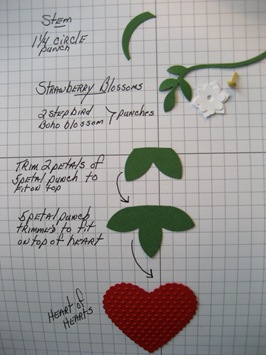 Stem
1 1/4 circle
punch
Strawberry Blossoms
2 step bird
Boho blossom } punches
Trim 2 petals of
5 petal punch to
fit on top
5 petal punch
trimmed to fit
on top of heart
Heart of
Hearts